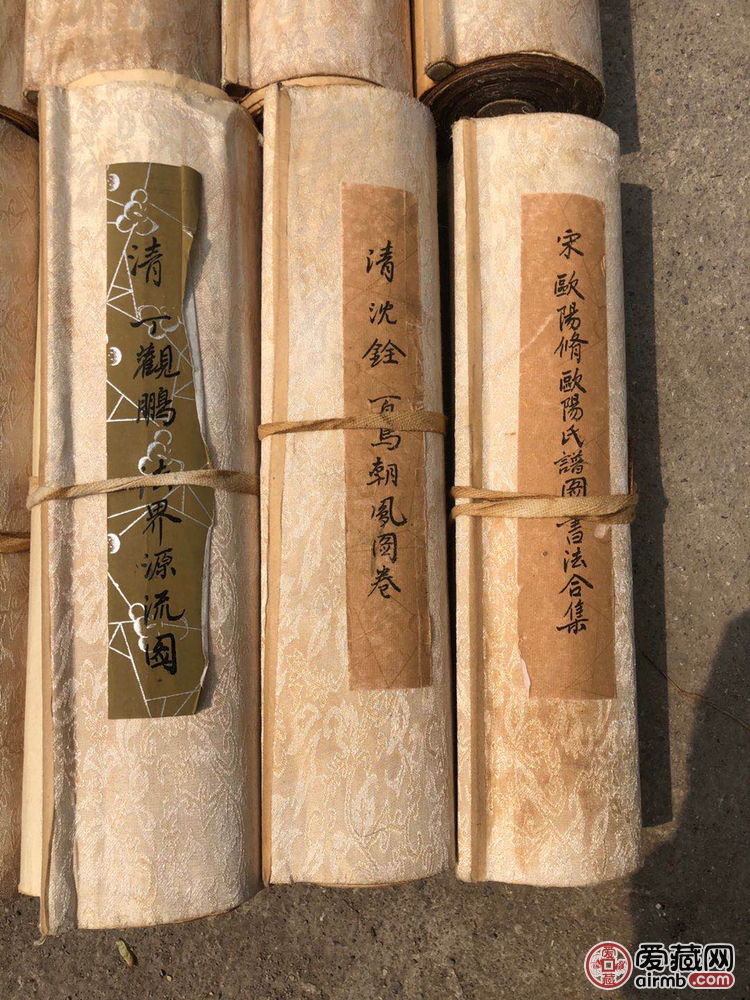 清 丁觀鵬 法界源流图
清 沈銓 百鳥朝鳳图卷
宋 歐陽脩歐陽氏譜图書法合集
爱藏网
airmb.com